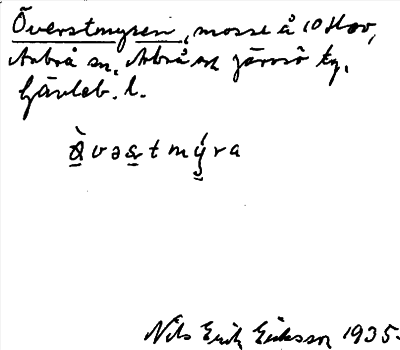 Överstmyren, mosse å 10 Hov,
Arbrå sn, Arbrå och Järvsö tg.
Gävleb. l.
Nils Erik Eriksson 1935.